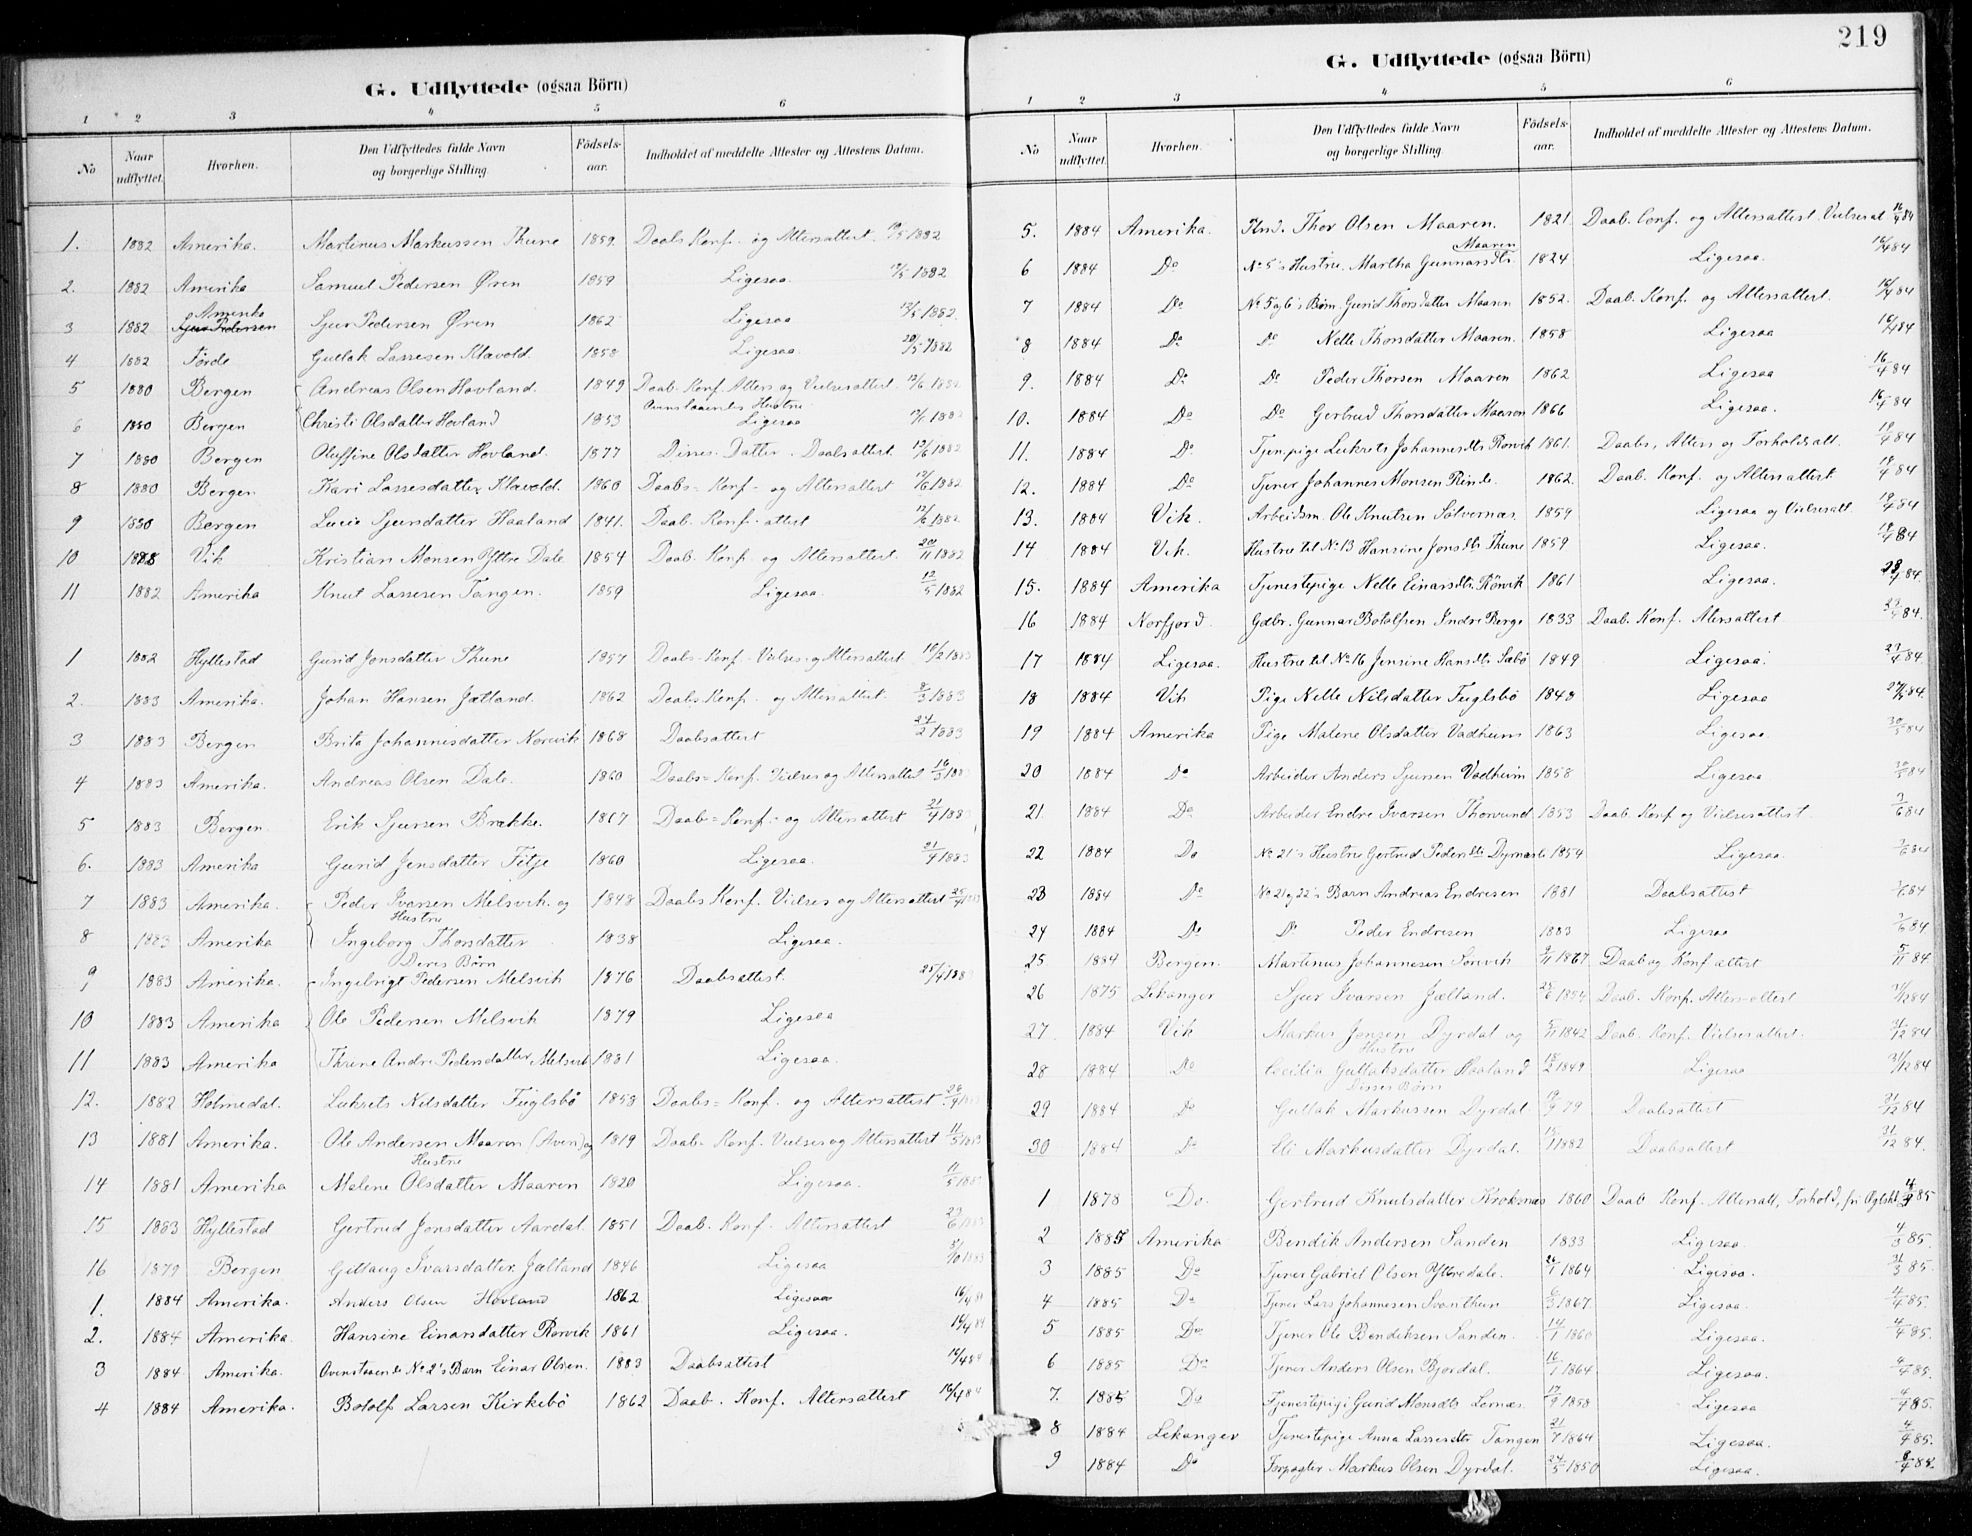 G. Udflyttede (ogsaa Börn)
1 2 3 4 5 6
No Naar udflyttet. Hvorhen. Den Udflyttedes fulde Navn og borgerlige Stilling Födsels-aar. Indholdet af meddelte Attester og Attestens Datum.
1. 1882 Amerika. Martinus Markussen Thune 1859. Daabs Konf. og Altersattest. 1882
2. 1882 Amerika Samuel Pedersen Øren 1859 Ligesaa. 1882
Amerika
3 1882 Sjur Pedersen Sjur Pedersen Øren 1862 Ligesaa 12/5 1882
4 1882 Førde Gullak Lassesen Klævold. 1858 Ligesaa. 1882
5 1880 Bergen Andreas Olsen Hovland. 1849 Daab. Konf. Alters og Vielsesattest. 12/6 1882
Ovenstaaendes Hustru
6 1880 Bergen Christi Olsdatter Hovland 1853 Ligesaa 1882
7 1880 Bergen Oluffine Olsdatter Hovland. 1877 Disses Datter. Daabsattest. 12/6 1882
8 1880 Bergen Kari Lassesdatter Klævold. 1860 Daabs- Konf- og Altersattest 12/6 1882
9 1880 Bergen Lucie Sjursdatter Haaland 1841. Daab. Konf. attest 12/6 1882
10 1882 Vik Kristian Monsen Yttre Dale 1854 Daab. Konf. og Altersattest. 20/11 1882
11 1882 Amerika Knut Lassesen Tangen. 1859 Ligesaa. 12/5 1882
1 1882 Hyllestad Gurid Jonsdatter Thune 1857 Daabs- Konf. Vielses- og Altersattest. 10/2 1883
2. 1883 Amerika. Johan Hansen Jætland. 1862 Daabs Konf. og Altersattest. 8/3 1883
3 1883 Bergen Brita Johannesdatter Norevik 1868 Daabsattest 24/2 1883
4 1883 Amerika. Andreas Olsen Dale. 1860 Daabs- Konf. Vielses og Altersattest 16/3 1883
5 1883 Bergen. Erik Sjursen Brække. 1867 Daabs- Konf.- og Altersattest 21/4 1883
6. 1883 Amerika Gurid Jensdatter Fitje 1860 Ligesaa. 21/4 1883
7 1883 Amerika. Peder Ivarsen Melsvik. og 1848 Daabs Konf. Vielses og Altersattest 25/4 1883
Hustru
8 1883 Amerika Ingeborg Thorsdatter 1838 Ligesaa.
Deres Børn
9 1883 Amerika. Ingebrigt Pedersen Melsvik 1876 Daabsattest. 25/4 1883
10 1883 Amerika Ole Pedersen Melsvik 1879 Ligesaa
11 1883 Amerika Thrine Andre Pedersdatter Melsvik 1881 Ligesaa.
12. 1882 Holmedal. Lukrets Nilsdatter Fuglsbø 1858 Daabs- Konf. og Altersattest
13 1881 Amerika. Ole Andersen Maaren (Aven) og 1819 Daab- Konf. Vielses og Altersattest 11/5 1883
Hustru
14 1881 Amerika Malene Olsdatter Maaren 1820 Ligesaa. 11/5
15 1883 Hyllestad Gertrud Jonsdatter Aardal. 1851 Daab. Konf. Altersattest
16 1879 Bergen Gullaug Ivarsdatter Jætland 1846 Ligesaa
1. 1884 Amerika. Anders Olsen Hovland 1862 Ligesaa 16/4 84
2. 1884 Amerika. Hansine Einarsdatter Rørvik 1861 Ligesaa. 16/4 84
3 1884 Amerika. Ovenstaaende No 2's Barn Einar Olsen. 1883 Daabsattest 16/4 84
4 1884 Amerika. Botolf Larsen Kirkebø 1862 Daab. Konf. Altersattest 16/4 84
219
G. Udflyttede (ogsaa Börn)
1 2 3 4 5 6
No Naar udflyttet. Hvorhen. Den Udflyttedes fulde Navn og borgerlige Stilling Födsels-aar. Indholdet af meddelte Attester og Attestens Datum.
5. 1884 Amerika. Thor Olsen Maaren. 1821. Daab. Conf. og Altersattest. Vielsesat 16/4 84
Maaren
6 1884 Do No 5's Hustru. Martha Gunnarsdtr. 1824 Ligesaa. 16/4 84
7 1884 Do No 5 og 6's Børn. Gurid Thorsdatter Maaren 1852. Daab. Konf. og Altersattest. 16/4 84
8 1884 Do Do Nelle Thorsdatter Maaren. 1858 Ligesaa 16/4 84
9. 1884 Do Do Peder Thorsen Maaren 1862 Ligesaa 16/4 84
10. 1884 Do Do Gertrud Thorsdatter Maaren 1866 Ligesaa. 16/4 84
11. 1884 Do Tjen.pige Lukrets Johannesdtr Rørvik 1861. Daabs, Alters og Forholdsatt. 18/4 84
12. 1884 Do Tjener Johannes Monsen Rinde. 1862. Daab. Konf. og Altersattest. 18/4 84
13. 1884 Vik. Arbeidsm. Ole Knutsen Sølvernæs. 1859 Ligesaa og Vielsesatt.
14 1884 Vik. Hustru til No 13 Hansine Jonsdtr Thune 1859 Ligesaa.
15. 1884 Amerika Tjenestepige Nelle Einarsdtr. Rörvik 1861 Ligesaa.
16 1884 Norfjord. Gdbr. Gunnar Botolfsen Indre Berge 1833 Daab. Konf. Altersattest
17 1884 Ligesaa. Hustru til No 16 Jensine Hansdtr Sæbø 1849 Ligesaa.
18 1884 Vik Pige Nelle Nilsdatter Fuglsbø 1848 Ligesaa
19 1884 Amerika Pige Malene Olsdatter Vadheim 1863 Ligesaa. 30/5 84
20 1884 Do Arbeider Anders Sjursen Vadheim 1858 Ligesaa 30/5 84
21. 1884 Do Arbeider Endre Ivarsen Thorvund 1853 Daab Konf og Vielsesattest.
22 1884 Do No 21's Hustru Gertrud Pedersdtr Dyrnæsli 1854 Ligesaa.
23 1884 Do No 21 og 22's Barn Andreas Endresen 1881 Daabsattest
24 1884 Do Do Peder Endresen 1883 Ligesaa
25 1884 Bergen. Martinus Johannesen Sørevik 9/11 1867. Daab og Konf attest 5/11 84.
26 1875 Lekanger Sjur Ivarsen Jætland. 25/6 1854 Daab. Konf. Alters-attest
27. 1884 Vik Markus Jonsen Dyrdal og 5/11 1842 Daab. Konf. Vielsesattest. 31/12 84
Hustru
28 1884 Do Cecilia Gullaksdatter Haaland 18/2 1849 Ligesaa 31/12 84
Disses Børn
29 1884 Do Gullak Markussen Dyrdal. Daabsattest 31/12 84
30 1884 Do Eli Markusdatter Dyrdal. 1882 Daabsattest 31/12 84.
1 1878 Do. Gertrud Knutsdatter Kroknæs 1860 Daab Konf. Altersatt, Forhold, fri Ægtsk. 85
2 1885 Amerika Bendik Andersen Sanden 1833 Ligesaa. 4/3 85.
3 1885 Do Tjener Gabriel Olsen Yttredale. 26/1 1864 Ligesaa. 31/3 85.
4 1885 Do Tjener Lars Johannesen Svanthun 6/3 1867. Ligesaa. 4/4 85.
5 1885 Do Tjener Ole Bendiksen Sanden. 14/1 1860 Ligesaa. 4/4 85.
6 1885 Do Tjener Anders Olsen Bjordal. 16/1 1864 Ligesaa. 4/4 85.
7. 1885 Do Tjenestepige Gurid Monsdtr Lornæs. 17/9 1858 Ligesaa 4/4 85.
8 1884 Lekanger Tjenestepige Anna Lassesdtr Tangen 21/7 1864 Ligesaa. 4/4 85.
9 1884 Do Forpagter Markus Olsen Dyrdal. 24/5 1850 Ligesaa. 8/4 85.